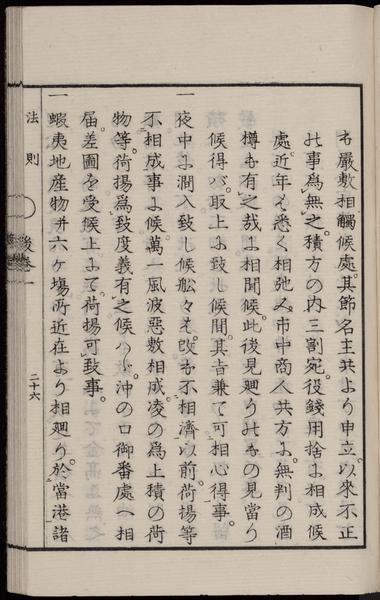 も嚴敷相觸候處。其節名主共より申立。以來不正
の事爲無之。積方の内三割宛。役錢用捨に相成候
處近年も悉く相弛み。市中商人共方よ。無判の酒
樽も有之哉よ相聞候。此後見廻りのもの見當り
候得バ。取上よ致し候間。其旨兼て可相心得事。
一夜中よ澗入致し候舩々も。改も不相濟以前。荷揚等
不相成事よ候。萬一風波惡敷相成。凌の爲上積の荷
物等。荷揚爲致度義有之候ハヾ。沖の口御番處へ相
届。差圖を受候上よて。荷揚可致事。
一蝦夷地産物并六ケ塲所近在より相廻り。於當港諸
法則
後巻一
二十六